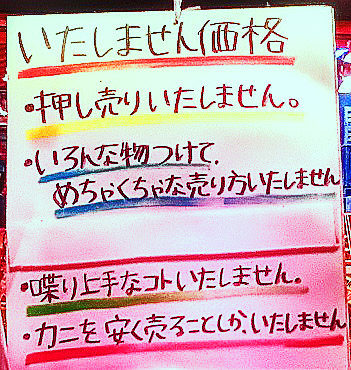 いたしません価格
・押し売りいたしません。
・いろんな物つけて、
めちゃくちゃな売り方いたしません
・喋り上手なコトいたしません。
・カニを安く売ることしか、いたしません